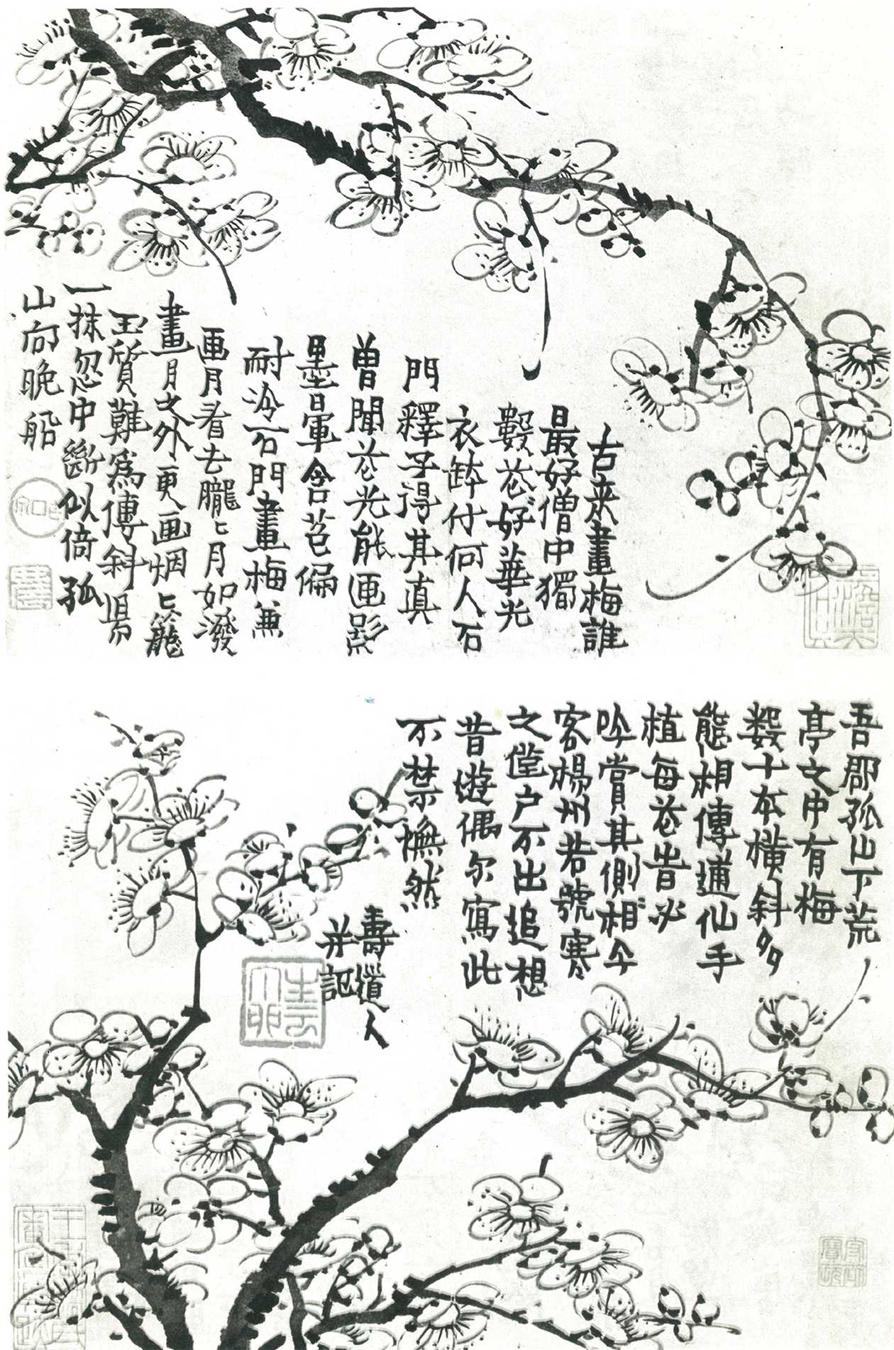 古來畫梅誰
最好僧中獨
數花光好華光
衣鉢付何人石
門釋子得其真
曾聞花光能匝影
墨暈含苞偏
耐冷石門畫梅兼
画月看去朧〻月如潑
畫月之外更画烟〻籠
玉質難為傳斜陽
一抹忽中斷似倚孤
山向晚船
吾郡孤山下荒
亭之中有梅
數十本橫斜多
態相傳逋仙手
植每花時必
吟賞其側相今
客楊州若號寒
之虫戶不出追想
昔遊偶尔寫此
不禁憮然
壽道人
并記